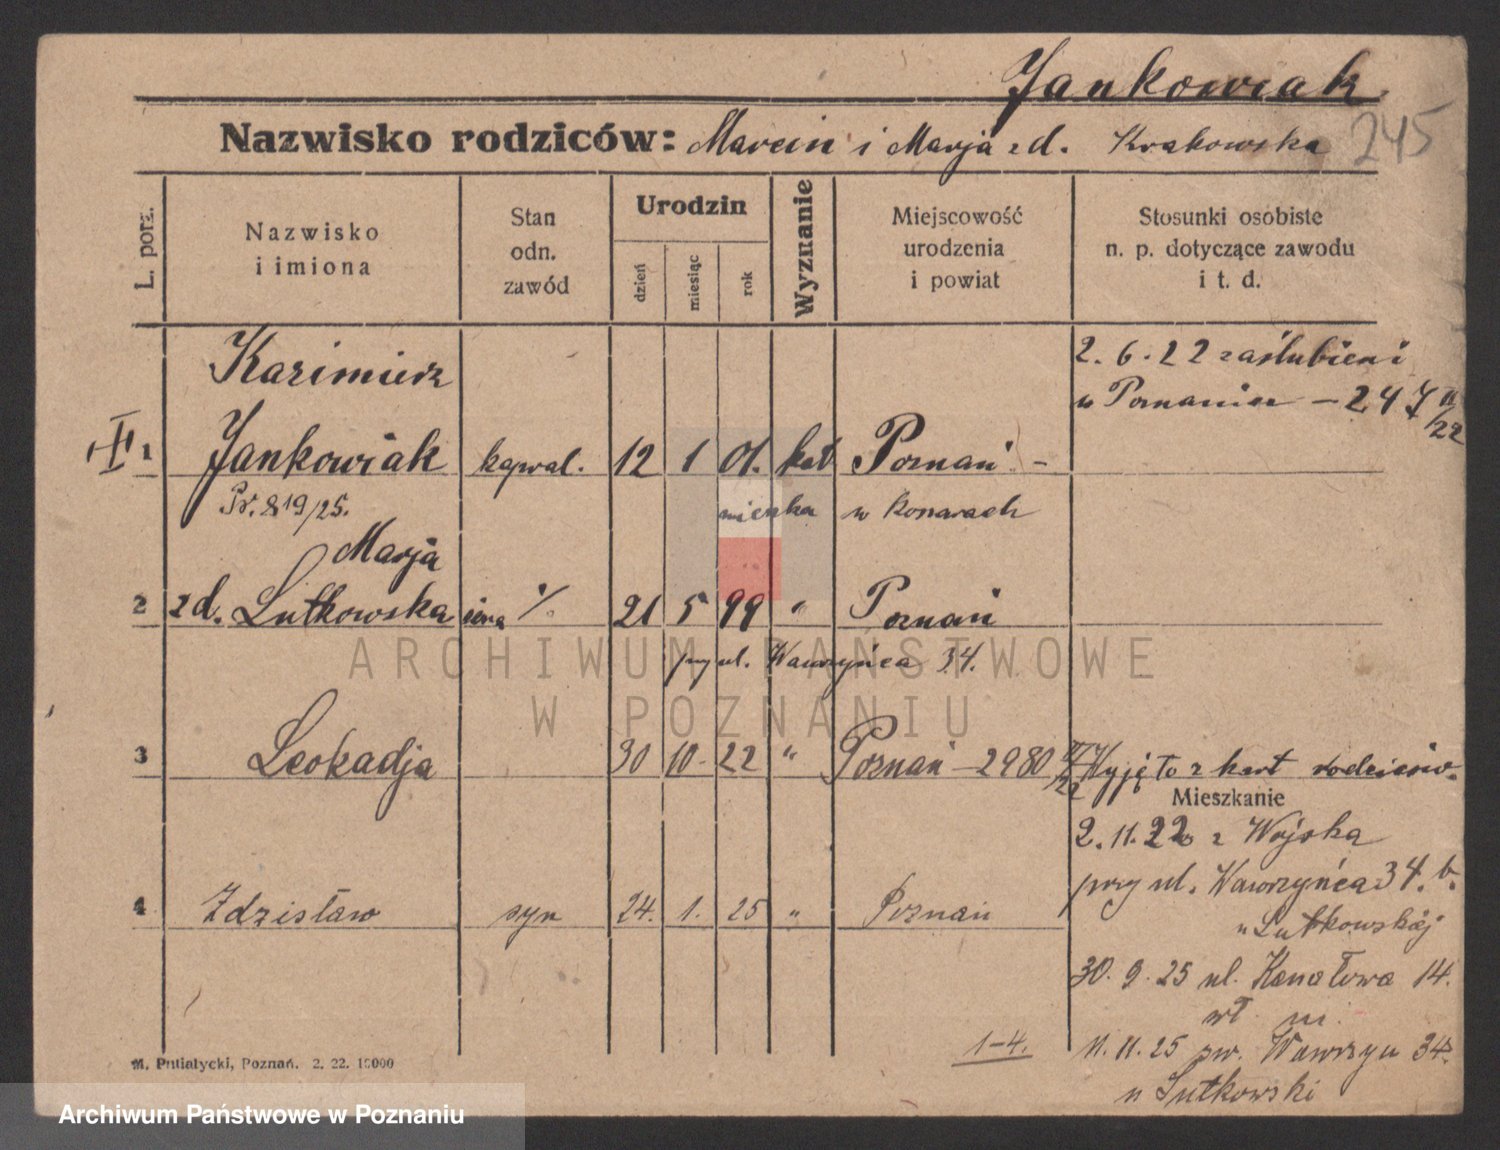 Jankowiak
Nazwisko rodziców: Marcin i Marja z d. Krakowska 245
L. porz.
Nazwisko
i imiona
Stan
odn.
zawód
Urodzin
dzień
miesiąc
rok
Wyznanie
Miejscowość
urodzenia
i powiat
Stosunki osobiste
n. p. dotyczące zawodu
i t. d.
Kazimierz
2. 6. 22 zaślubieni
w Poznaniu - 247 II/22
1 Jankowiak kapral. 12 1 01. kat Poznań -
Pr. 819/25. mieszka w Konarach
Marja
2 z d. Lutkowska żona % 21 5 99 " Poznań
przy ul. Wawrzyńca 34.
3 Leokadja 30 10 22 " Poznań - 2980 Wyjęto z kart rodziców.
Mieszkanie
2. 11. 22 z Wojska
przy ul. Wawrzyńca 34. b.
4 Zdzisław syn 24. 1. 25 " Poznań
u Lutkowskiej
30. 9. 25 ul. Kanałowa 14.
wł. m.
1-4. 11. 11. 25 św. Wawrzyn 34.
u Lutkowski
M. Putiatycki, Poznań. 2. 22. 10000
ARCHIWUM PAŃSTWOWE
W POZNANIU
Archiwum Państwowe w Poznaniu